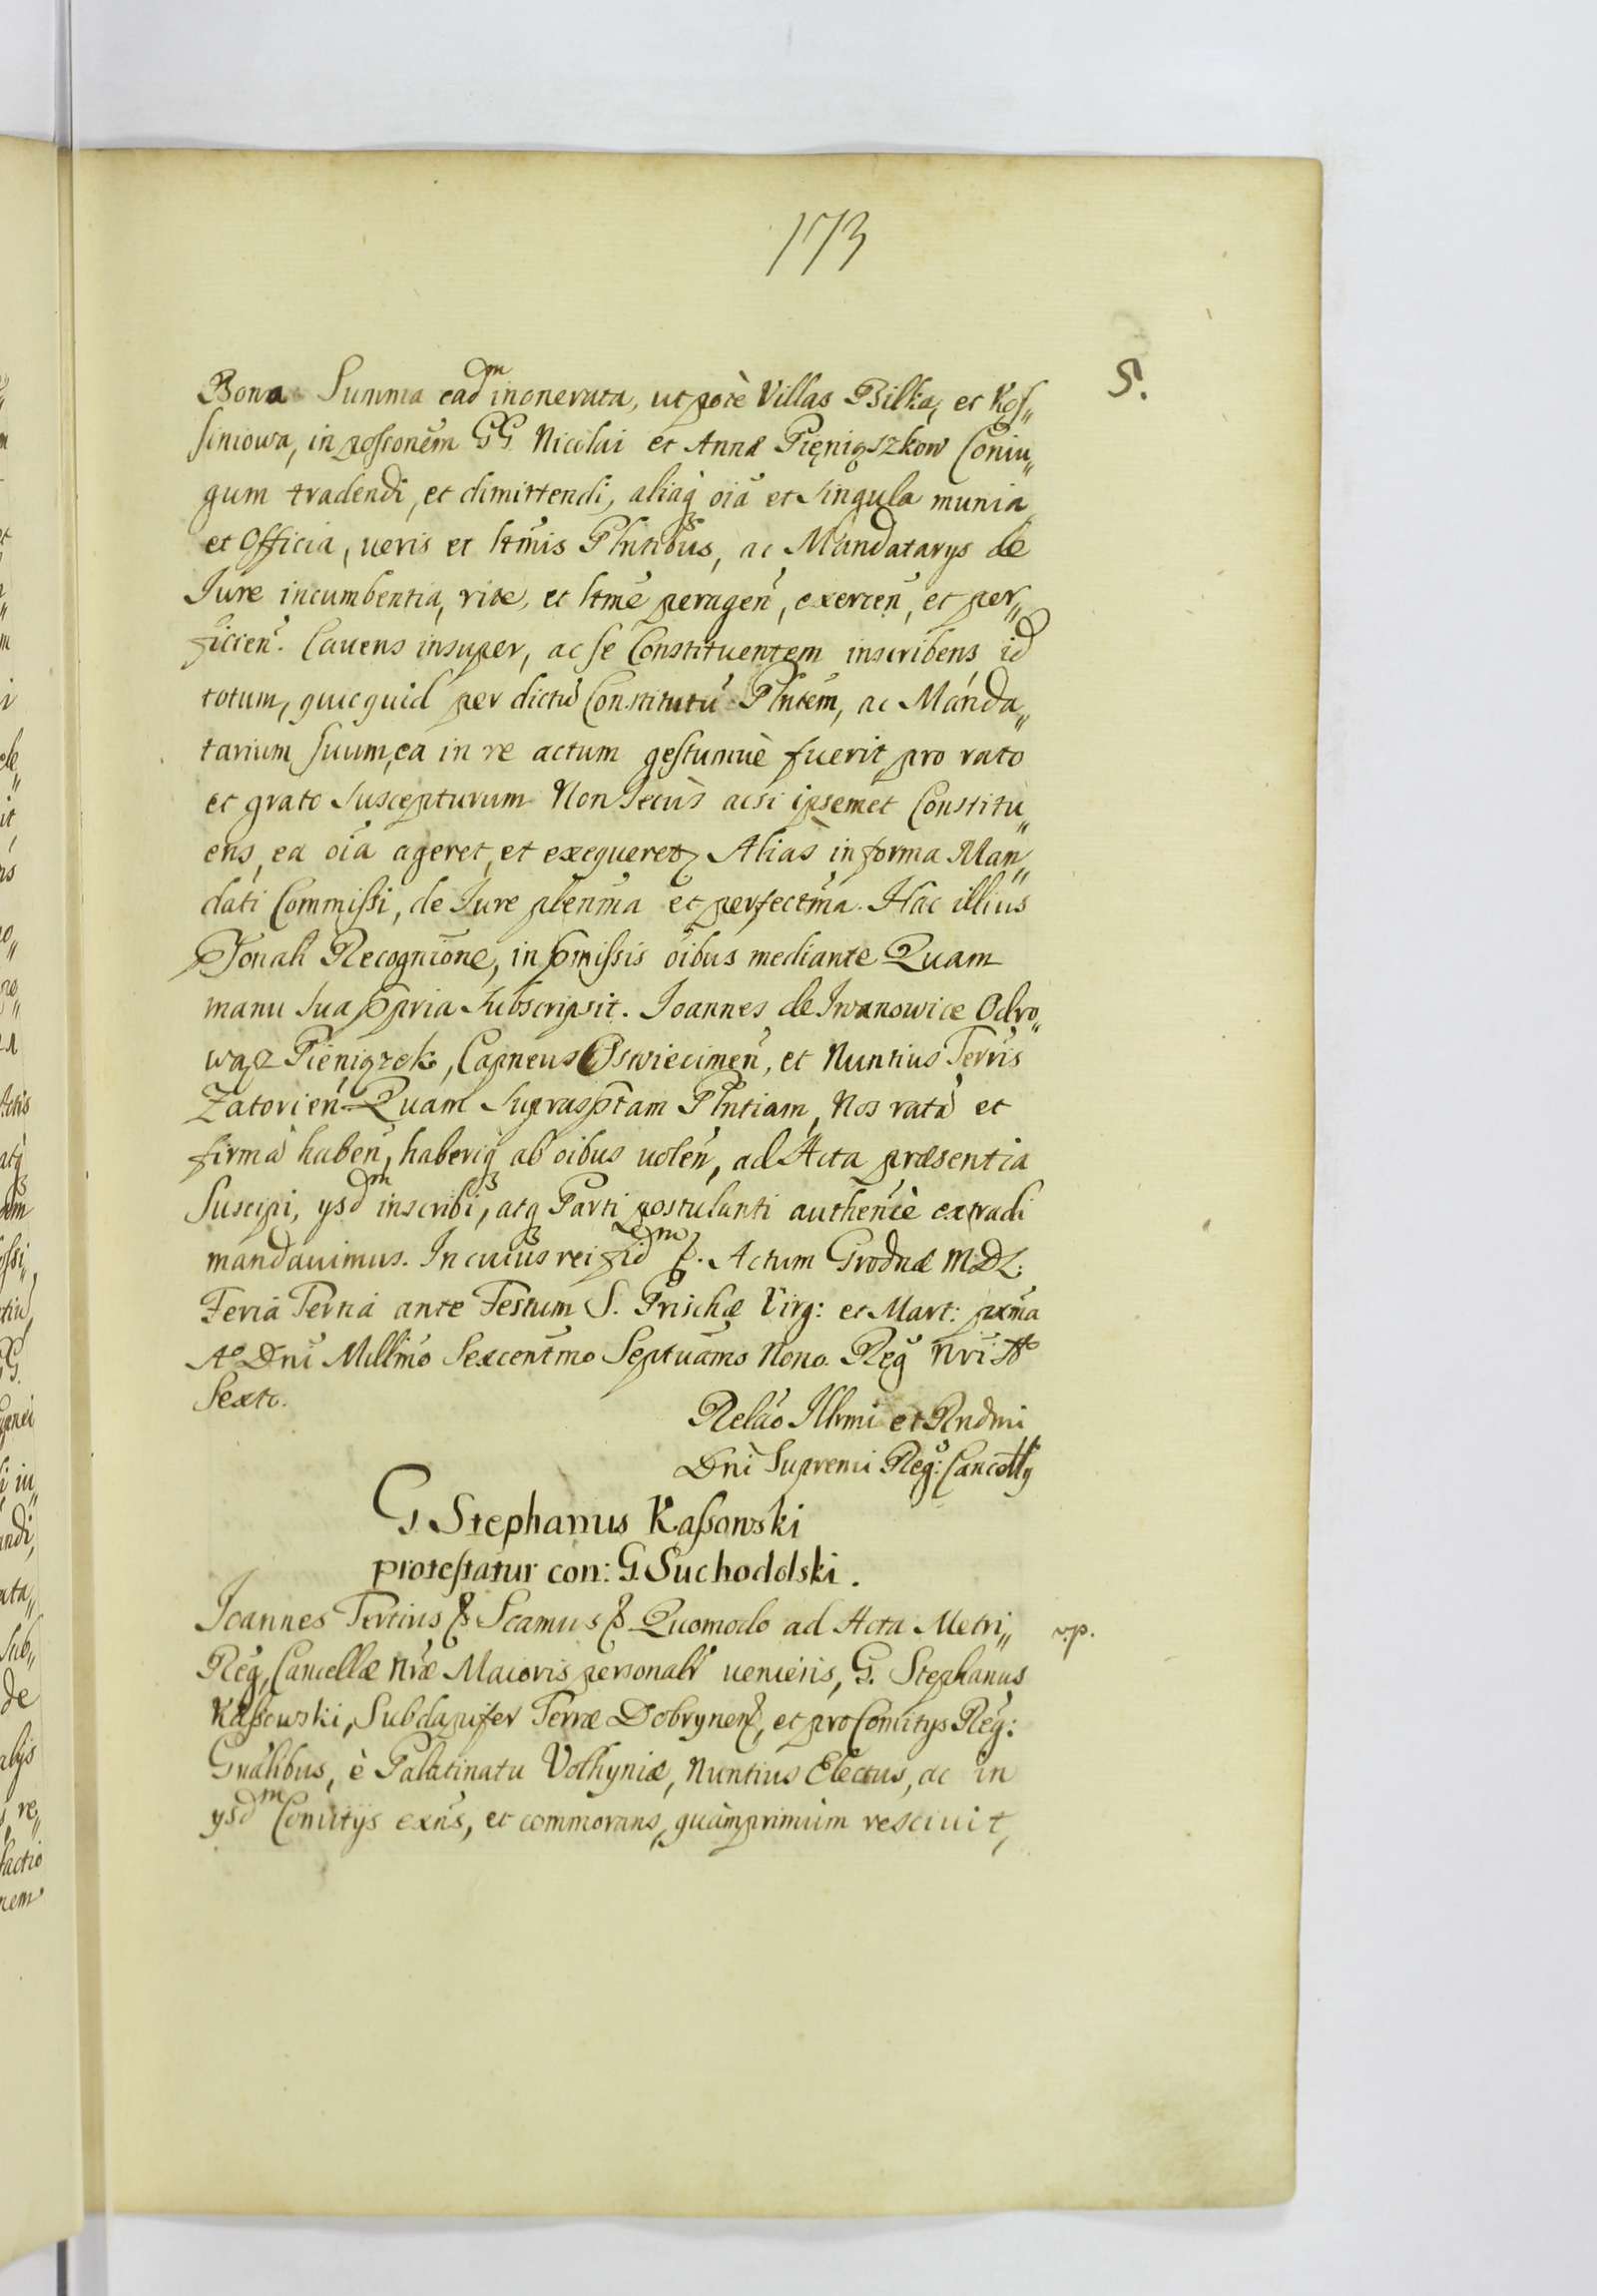 173
5.
Bona Summa ead<sup>m</sup> inonerata, utpotè Villas Bilka, et Kos„
siniowa, in possonem GG. Nicolai et Annæ Pięniąszkow Coniu„
gum tradendi, et dimittendi, aliaq oia et singula munia
et Officia, veris et ltmis Plntibus, ac Mandatarys de
Iure incumbentia, rite, et ltme peragen, exercen, et per„
ficien. Cavens insuper, ac se Constituentem inscribens id
totum, quicquid per dictu Constitutu Plntem, ac Manda„
tarium suum, ea in re actum gestumuè fuerit, pro rato
et grato suscepturum Non secùs acsi ipsemet Constitu„
ens, ea oia ageret, et exequeret Alias in forma Man„
dati Commissi, de Iure plenma et perfectma. Hac illius
Psonali Recognione, in pmissis oibus mediante Quam
manu sua ppria subscripsit. Ioannes de Iwanowice Odro„
wąz Pieniązek, Capneus Oswiecimen, et Nuntius Terris
Zatorien. Quam suprasptam Plntiam, Nos ratà et
firmà haben, haberiq ab oibus volen, ad Acta præsentia
suscipi, ysd<sup>m</sup> inscribi, atq Parti postulanti authenticè extradi
mandavimus. In cuius rei fid<sup>m</sup> &. Actum Grodnæ MDL.
Feria Tertia ante Festum S. Prischæ Virg: et Mart: pxma
A° Dni Millmo Sexcentmo Septuamo Nono. Reg nri A°
Sexto.
Relao Illrmi et Rndmi
Dni Supremi Reg: Cancelly
G. Stephanus Kassowski
protestatur con: G. Suchodolski.
Ioannes Tertius & Scamus & Quomodo ad Acta Metri„
v.p.
Reg, Cancellæ nræ Maioris personalr veniens, G. Stephanus
Kassowski, Subdapifer Terræ Dobrynen, et pro Comitys Reg:
Gnalibus, è Palatinatu Volhyniæ, Nuntius Electus, ac in
ysd<sup>m</sup> Comitijs exns, et commorans, quàmprimùm rescivit,